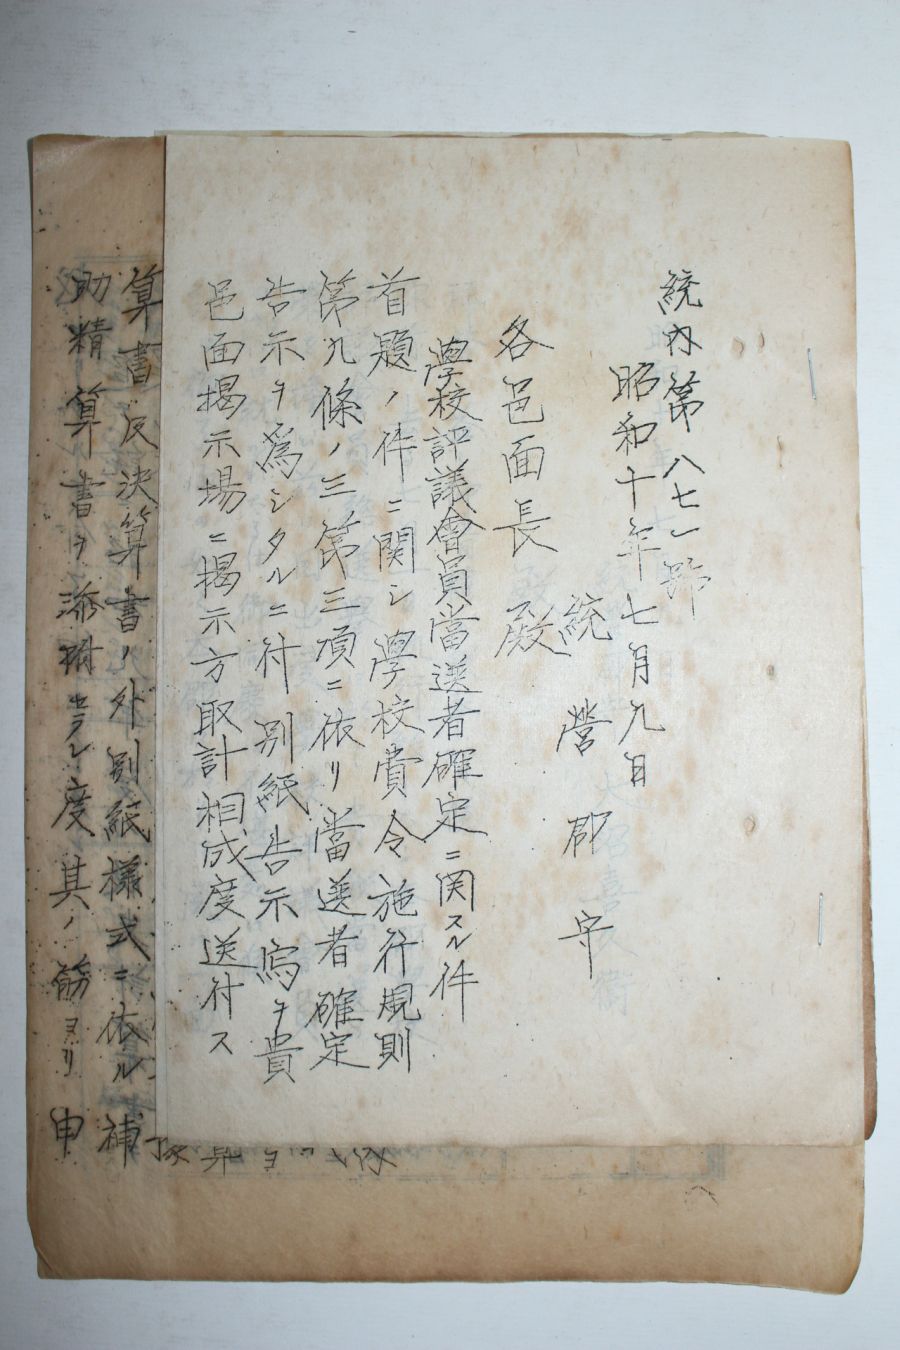 統内第八七一号
昭和十年七月九日
統營郡守
各邑面長殿
學校評議會員當選者確定ニ関スル件
首題ノ件ニ関シ學校費令施行規則
第九條ノ三第三項ニ依リ當選者確定
告示ヲ爲シタルニ付別紙告示寫ヲ貴
邑面揭示場ニ揭示方取計相成度送付ス
算書反決算書ノ外別紙樣式ニ依ル補
助精算書ヲ添附セラレ度其ノ筋ヨリ申